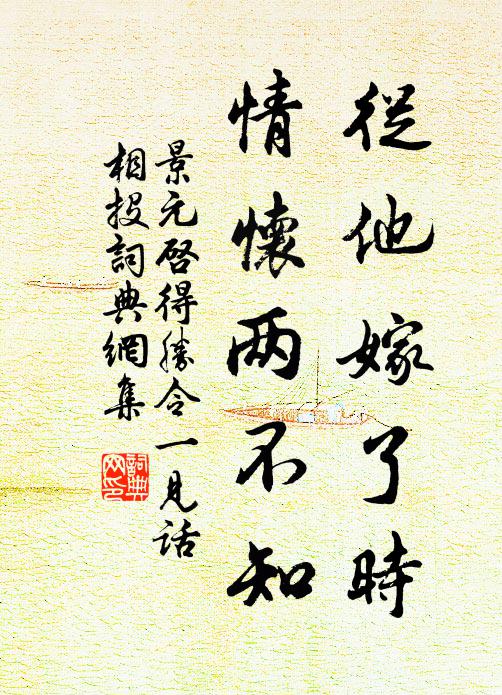 從他嫁了時
情懷两不知
景元啓得勝令一見話
相投詞典網集
詞典
网印